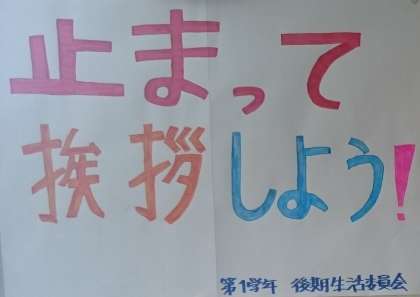 止まって
挨拶しよう!
第1学年 後期生活委員会